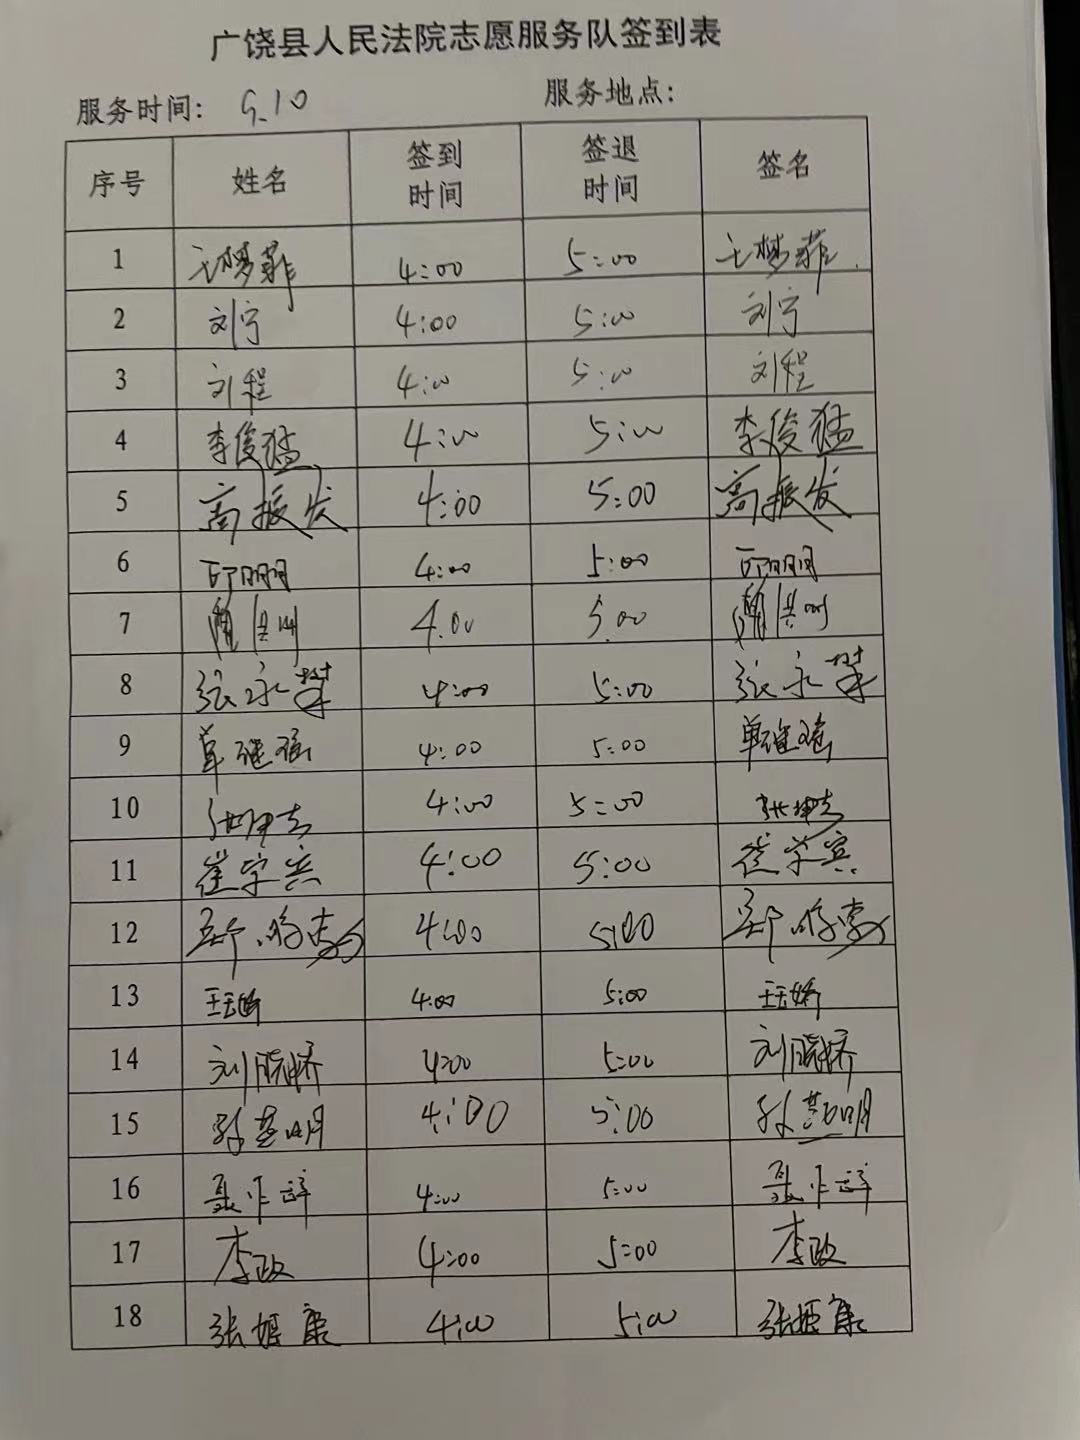 广饶县人民法院志愿服务队签到表
服务时间: 9.10 服务地点:
序号 姓名 签到时间 签退时间 签名
1 王梦菲 4:00 5:00 王梦菲
2 刘宁 4:00 5:00 刘宁
3 刘程 4:00 5:00 刘程
4 李俊猛 4:00 5:00 李俊猛
5 高振发 4:00 5:00 高振发
6 4:00 5:00
7 4.00 5.00
8 张永攀 4:00 5:00 张永攀
9 单继强 4:00 5:00 单继强
10 张坤志 4:00 5:00 张坤志
11 崔学宾 4:00 5:00 崔学宾
12 4:00 5:00
13 王玉娇 4:00 5:00 王玉娇
14 刘晓娇 4:00 5:00 刘晓娇
15 孙燕明 4:00 5:00 孙燕明
16 聂作 4:00 5:00 聂作
17 李政 4:00 5:00 李政
18 张姬康 4:00 5:00 张姬康